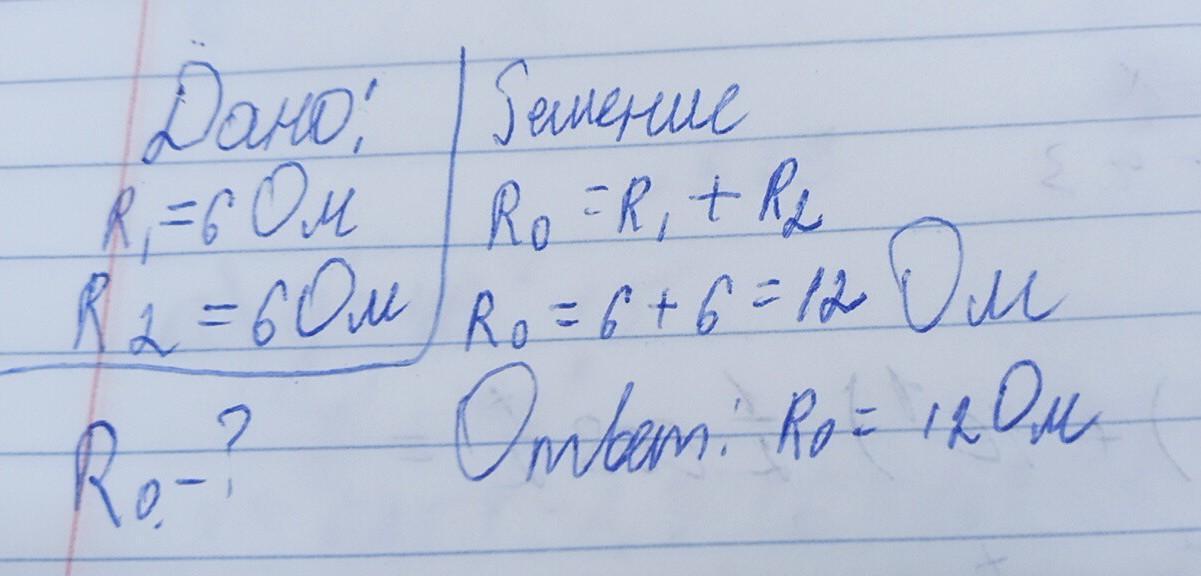 Дано:
R₁ = 6 Ом
R₂ = 6 Ом
R₀ - ?
Решение
R₀ = R₁ + R₂
R₀ = 6 + 6 = 12 Ом
Ответ: R₀ = 12 Ом